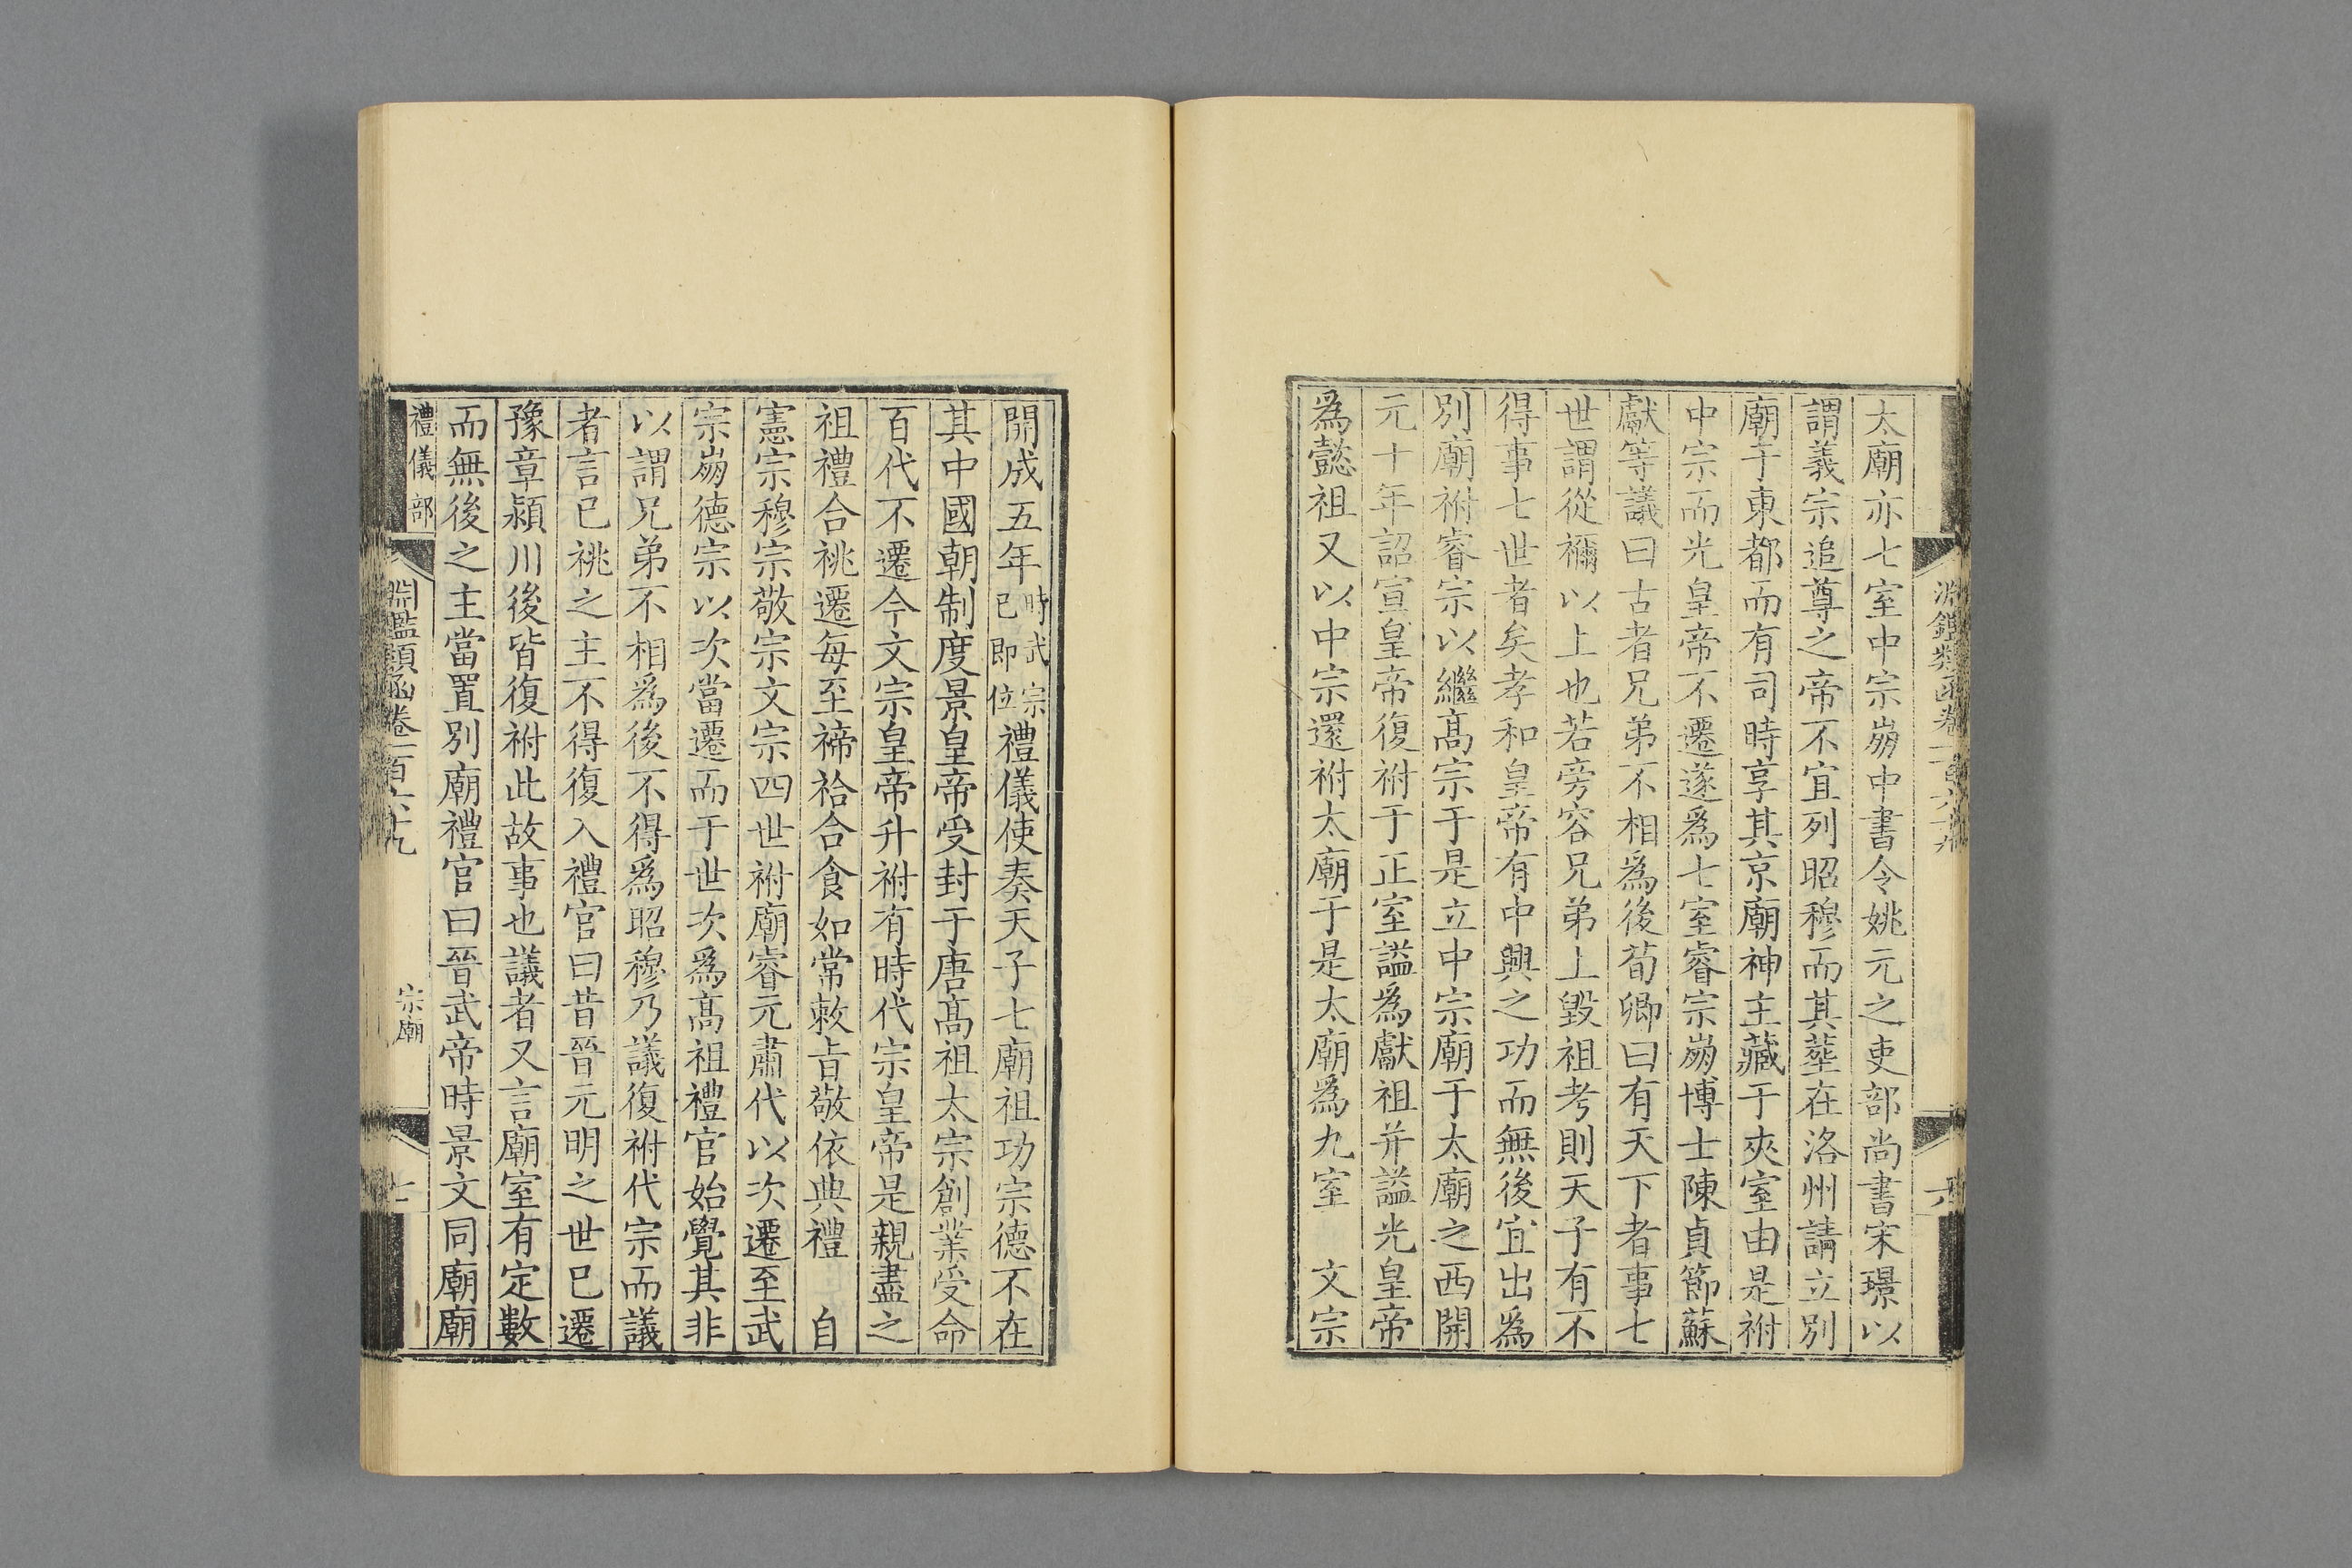 太廟亦七室中宗崩中書令姚元之吏部尚書宋璟以
謂義宗追尊之帝不宜列昭穆而其塟在洛州請立別
廟于東都而有司時享其京廟神主藏于夾室由是祔
中宗而光皇帝不遷遂爲七室睿宗崩博士陳貞節蘇
獻等議曰古者兄弟不相爲後荀卿曰有天下者事七
世謂從禰以上也若旁容兄弟上毀祖考則天子有不
得事七世者矣孝和皇帝有中興之功而無後宜出爲
別廟祔睿宗以繼髙宗于是立中宗廟于太廟之西開
元十年詔宣皇帝復祔于正室謚爲獻祖并謚光皇帝
爲懿祖又以中宗還祔太廟于是太廟爲九室　文宗
開成五年時武宗已即位禮儀使奏天子七廟祖功宗德不在
其中國朝制度景皇帝受封于唐髙祖太宗創業受命
百代不遷今文宗皇帝升祔有時代宗皇帝是親盡之
祖禮合祧遷每至禘祫合食如常敕旨敬依典禮　自
憲宗穆宗敬宗文宗四世祔廟睿元肅代以次遷至武
宗崩德宗以次當遷而于世次爲髙祖禮官始覺其非
以謂兄弟不相爲後不得爲昭穆乃議復祔代宗而議
者言已祧之主不得復入禮官曰昔晉元明之世已遷
豫章潁川後皆復祔此故事也議者又言廟室有定數
而無後之主當置別廟禮官曰晉武帝時景文同廟廟
禮儀部
淵鑑類函卷一百六十九
宗廟
七